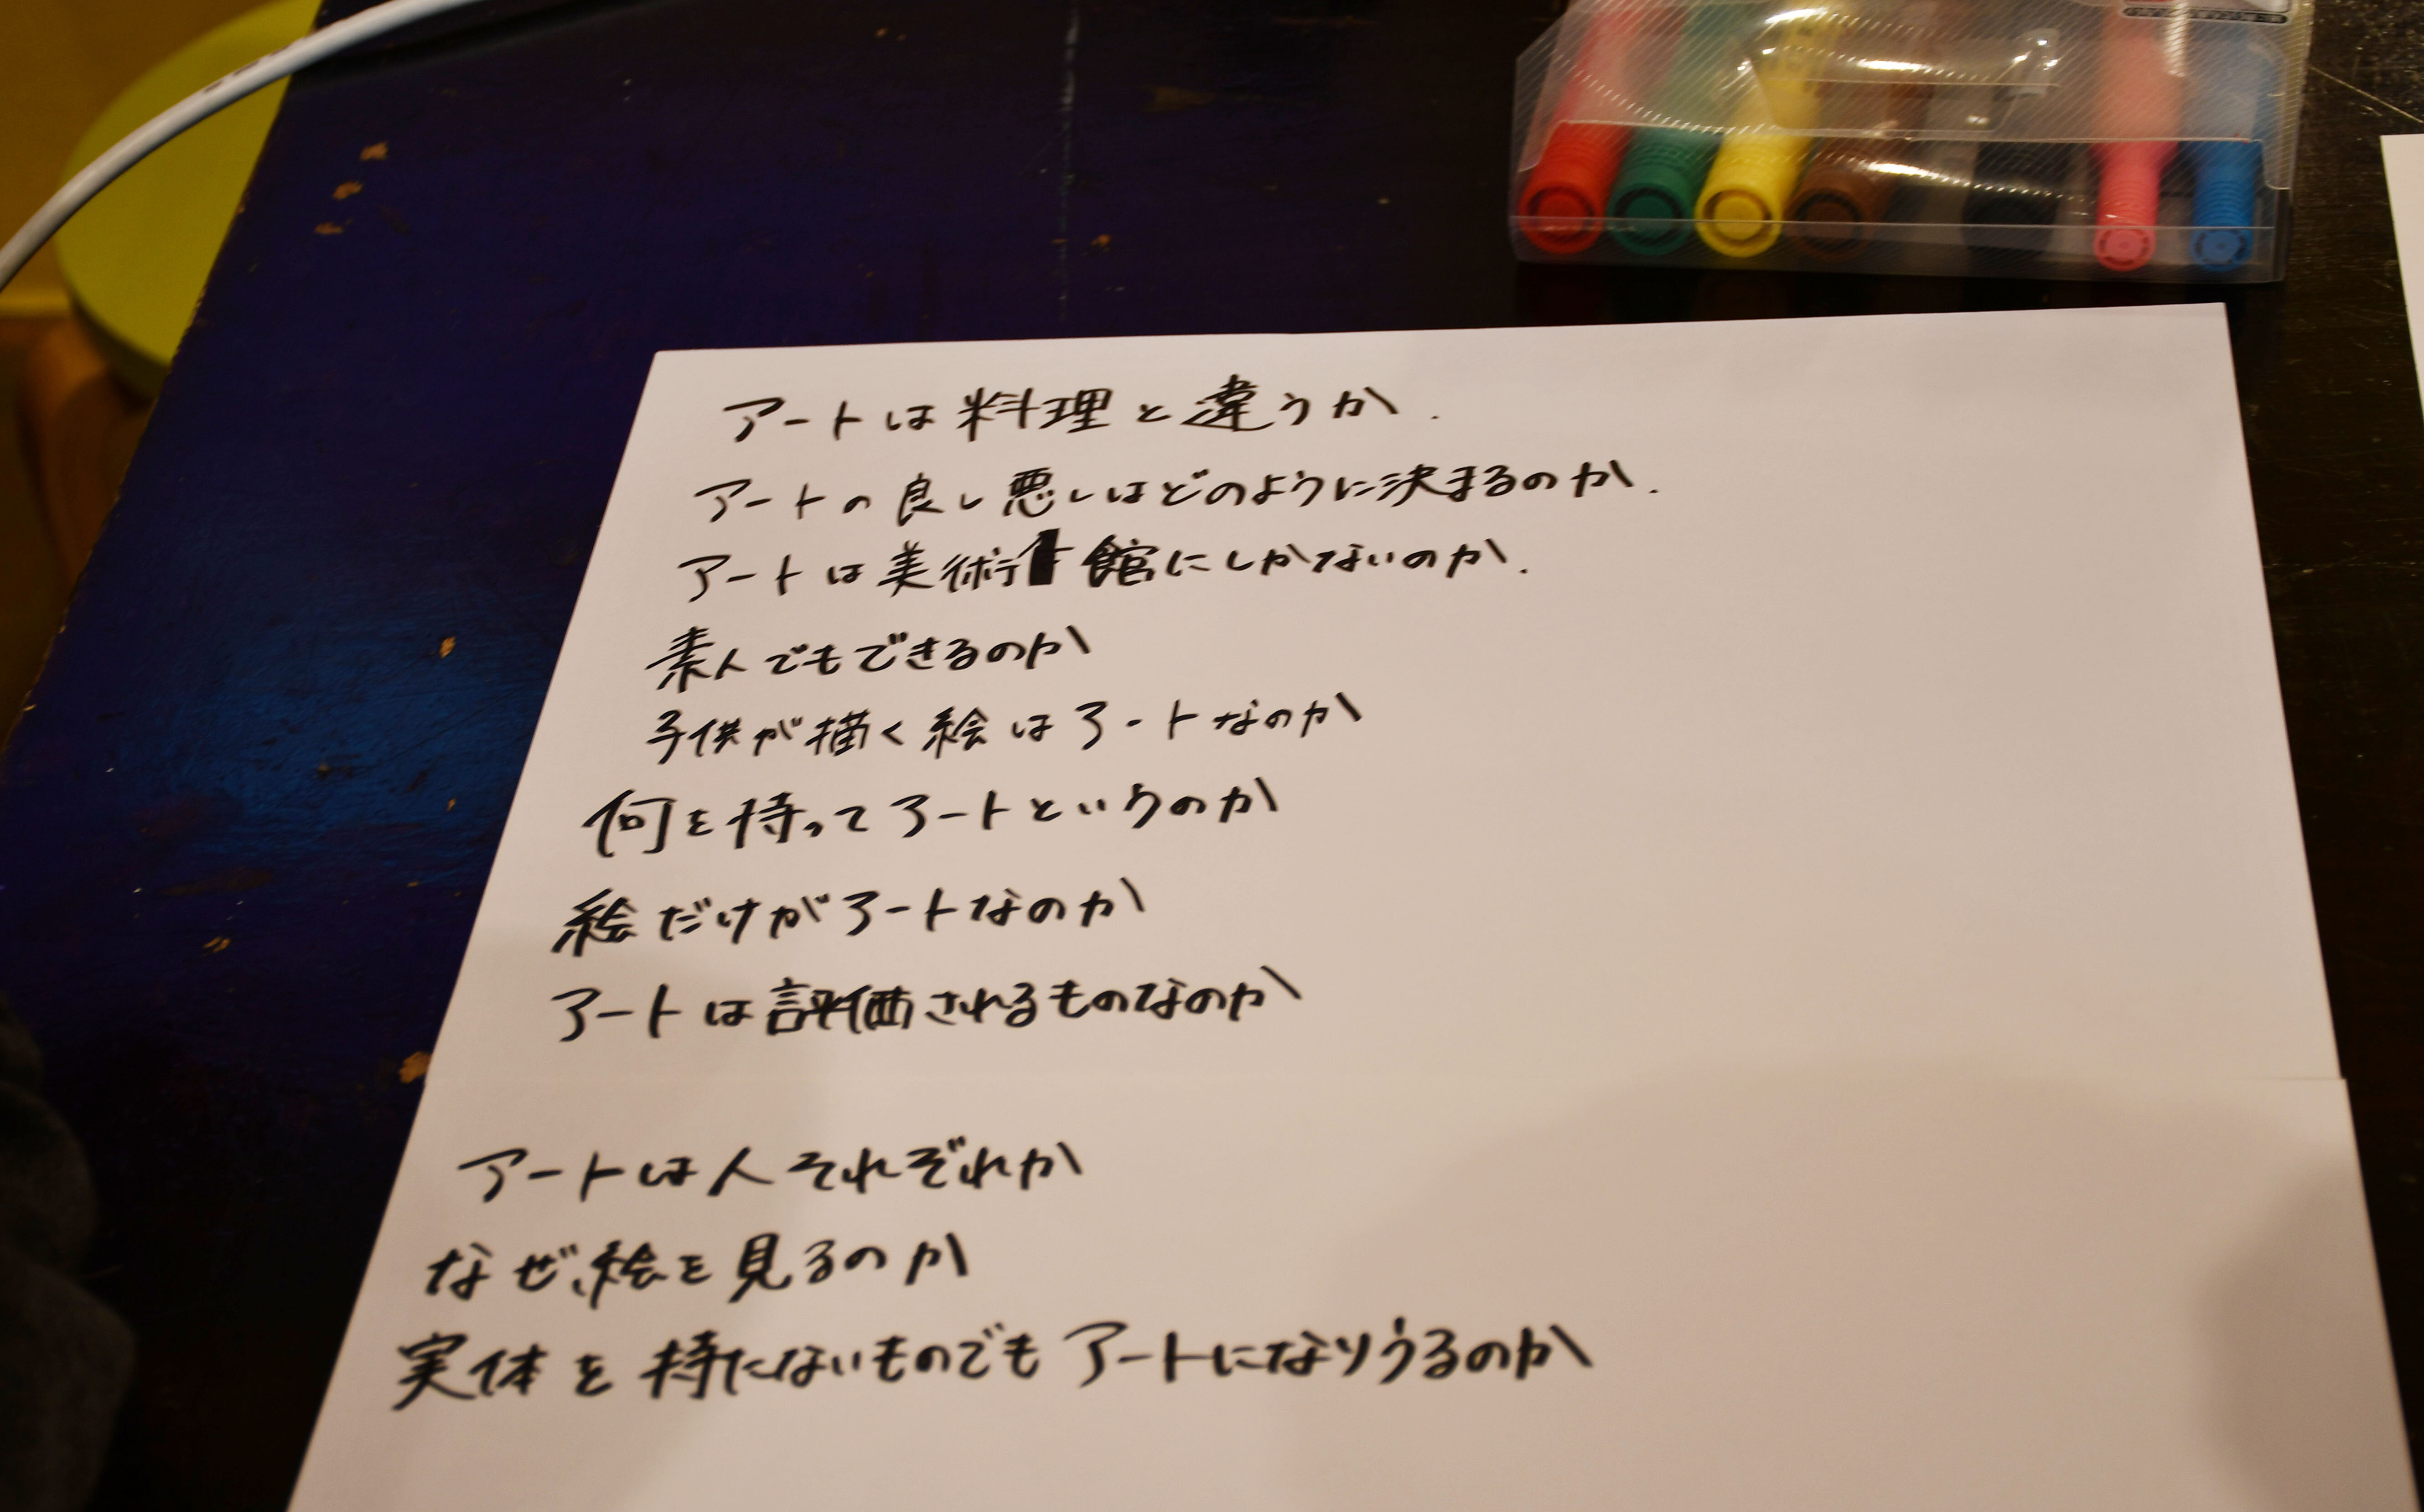 アートは料理と違うか.
アートの良し悪しはどのように決まるのか.
アートは美術館にしかないのか.
素人でもできるのか
子供が描く絵はアートなのか
何を持ってアートというのか
絵だけがアートなのか
アートは評価されるものなのか
アートは人それぞれか
なぜ、絵を見るのか
実体を持たないものでもアートになりうるのか